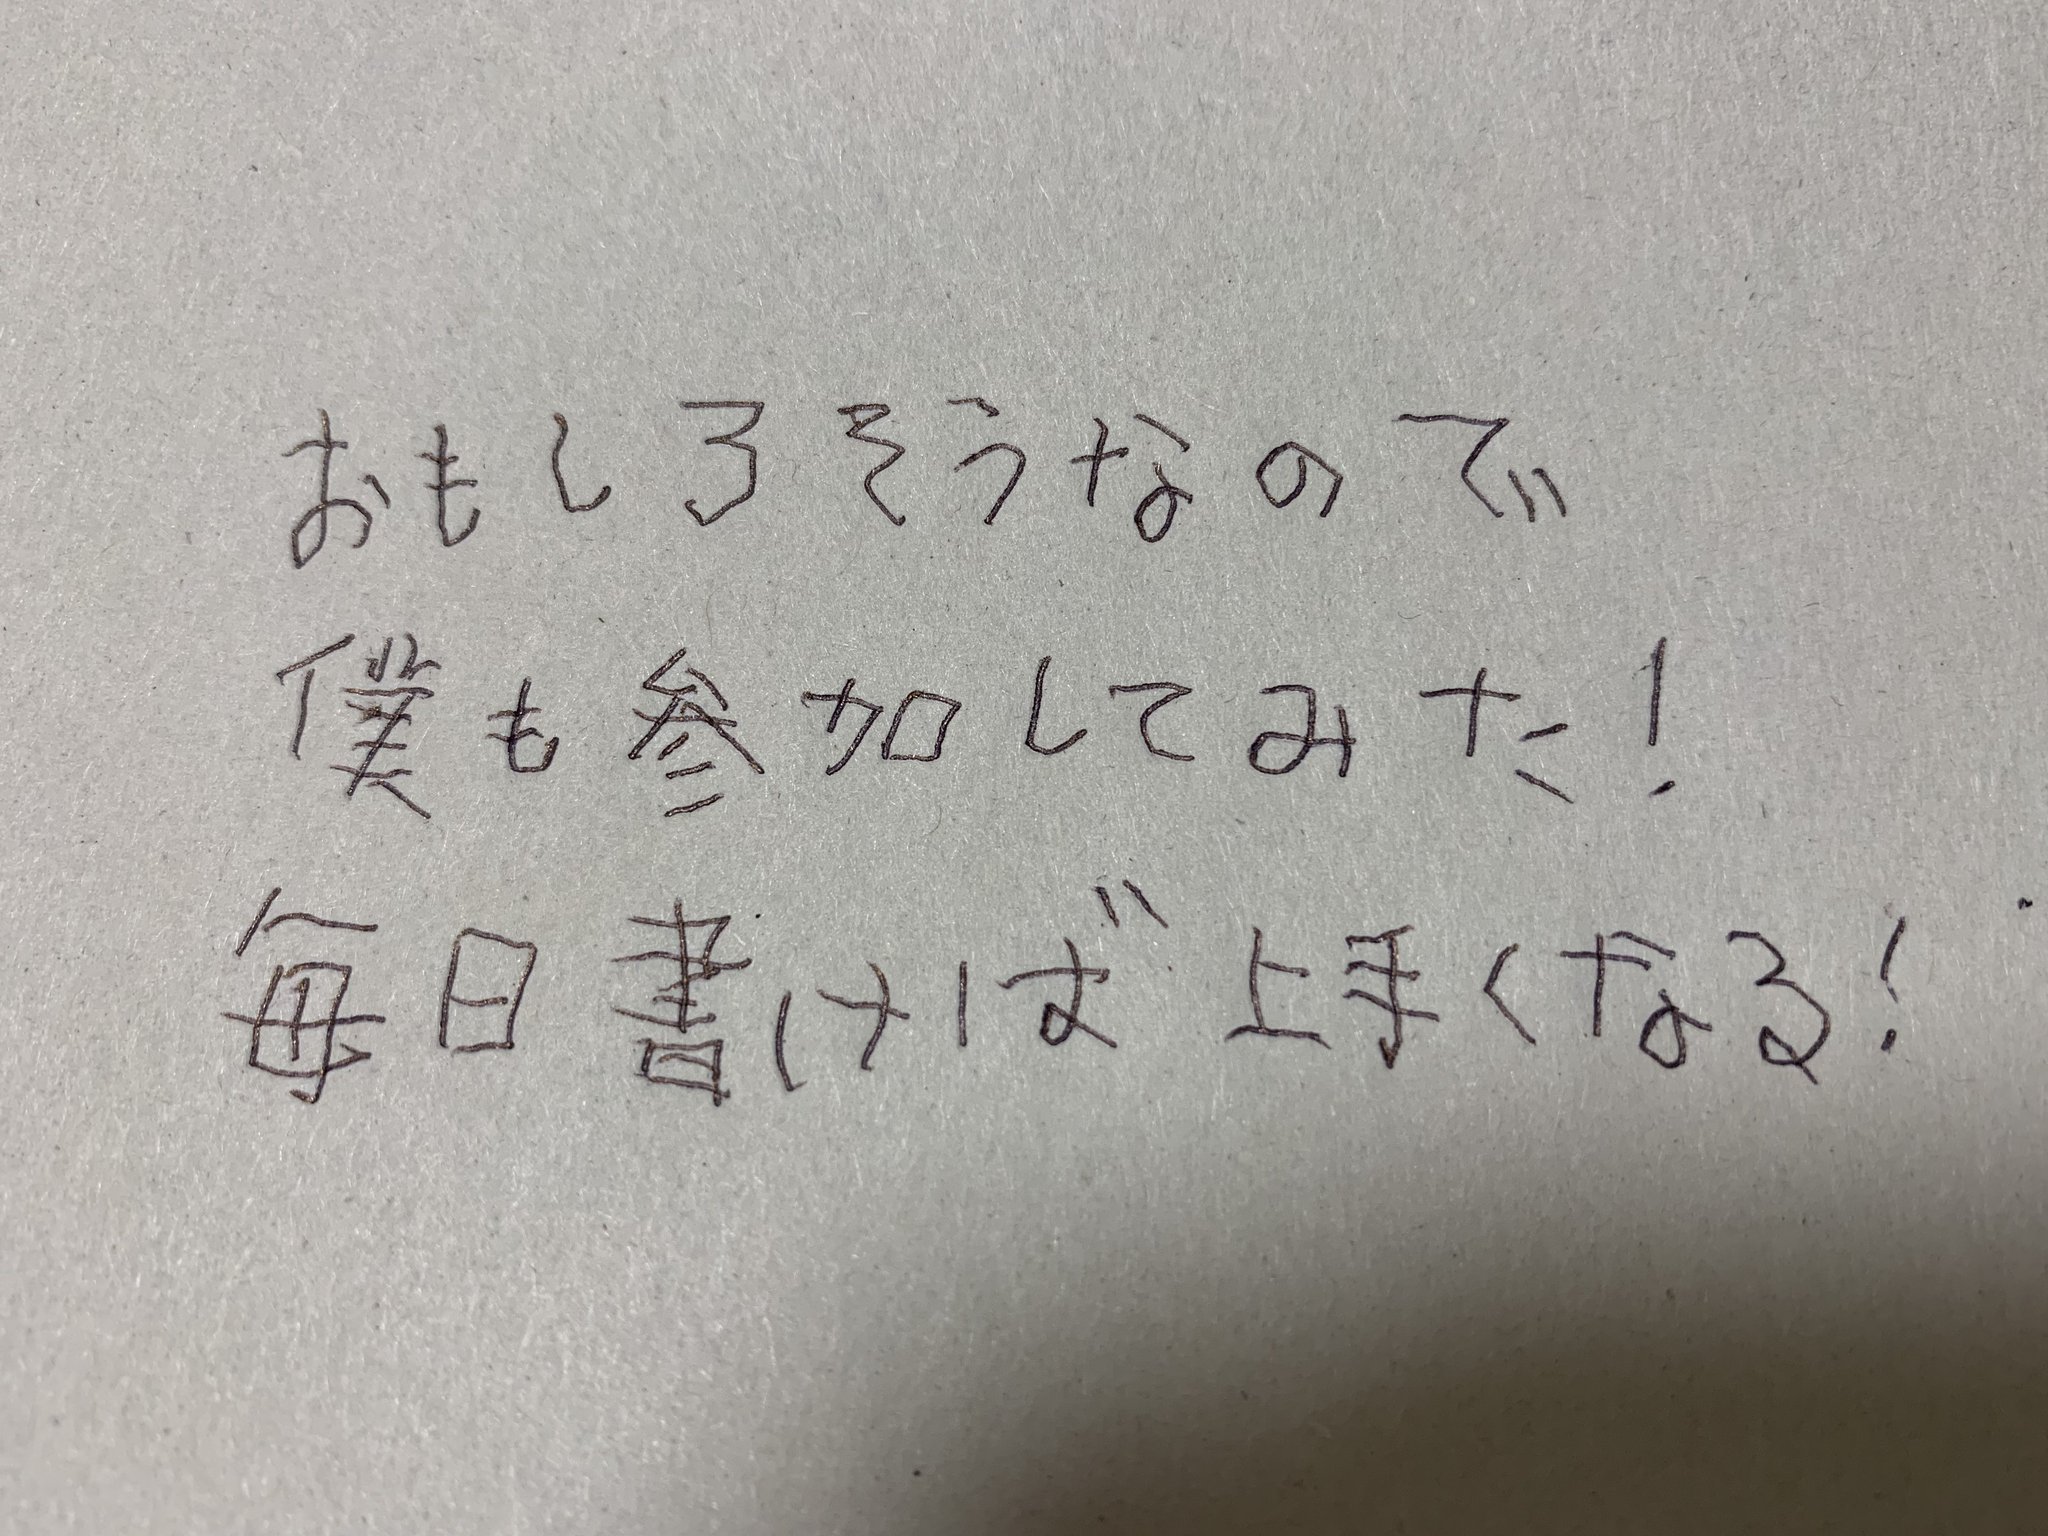 おもしろそうなので
僕も参加してみた!
毎日書けば上手くなる!